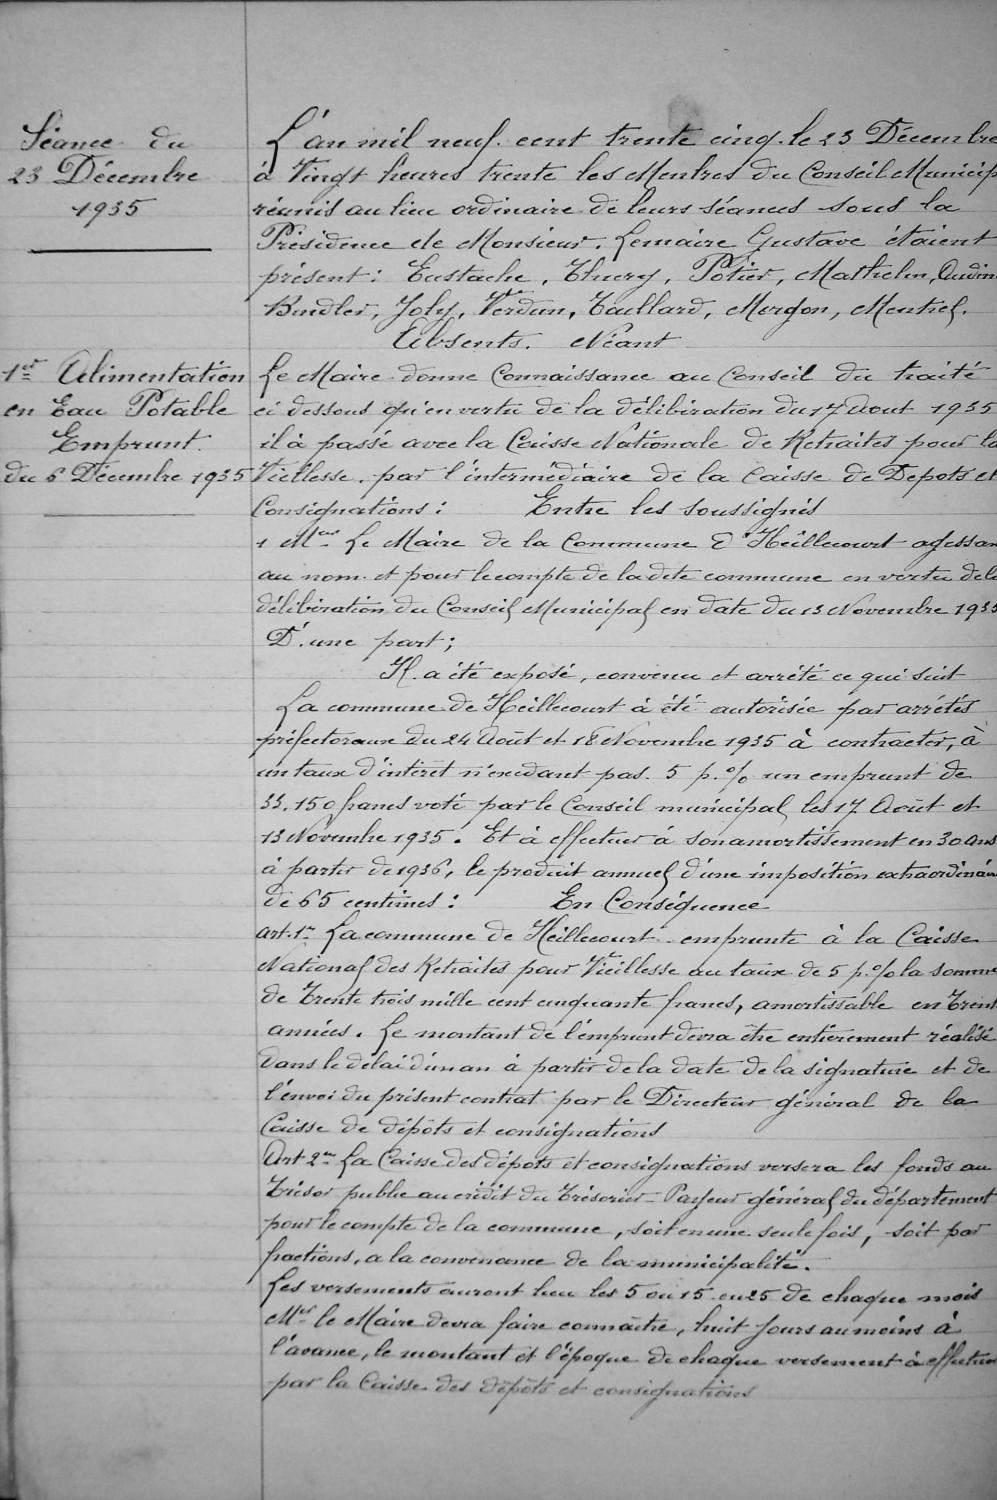 Séance du
23 Décembre
1935
L'an mil neuf cent trente cinq. le 23 Décembre
à Vingt heures trente les Membres du Conseil Municip
réunis au lieu ordinaire de leurs séances sous la
Présidence de Monsieur. Lemaire Gustave étaient
présent: Eustache, Thiery, Potier, Mathelin, Audin
Kindler, Joly, Verdun, Taillard, Morgon, Mentrel.
Absents. Néant
1er Alimentation
en Eau Potable
Emprunt.
du 6 Décembre 1935
Le Maire donne Connaissance au Conseil du traité
ci dessous qu'en vertu de la délibération du 17 Aout 1935
il à passé avec la Caisse Nationale de Retraites pour la
Vieillesse. par l'intermédiaire de la Caisse de Depots et
Consignations: Entre les soussignés
1 Mr Le Maire de la Commune d'Heillecourt agissan
au nom et pour le compte de la dite commune en vertu de la
délibération du Conseil Municipal en date du 13 Novembre 1935
D'une part;
Il a été exposé, convenu et arrété ce qui suit
La commune de Heillecourt à été autorisée par arrétés
préfectoraux du 24 Août et 18 Novembre 1935 à contracter, à
un taux d'intéret n'exedant pas. 5 p.% un emprunt de
33.150 francs voté par le Conseil municipal les 17 Août et
13 Novembre 1935. Et à effectuer à son amortissement en 30 ans
à partir de 1936, le produit annuel d'une imposition extraordinair
de 65 centimes: En Conséquence
art. 1er La commune de Heillecourt emprunte à la Caisse
National des Retraites pour Vieillesse au taux de 5 p.% la somme
de Trente trois mille cent cinquante francs, amortissable en Trent
années. Le montant de l'emprunt devra être entièrement réalisé
dans le délai d'un an à partir de la date de la signature et de
l'envoi du présent contrat par le Directeur général de la
Caisse de dépôts et consignations
Art 2me La Caisse des dépots et consignations versera les fonds au
Trésor public au crédit du Trésorier-Payeur général du département
pour le compte de la commune, soit en une seule fois, soit par
fractions, a la convenance de la municipalité.
Les versements auront lieu les 5 ou 15 ou 25 de chaque mois
Mr le Maire devra faire connaître, huit jours au moins à
l'avance, le montant et l'époque de chaque versement à effectuer
par la Caisse des dépôts et consignations